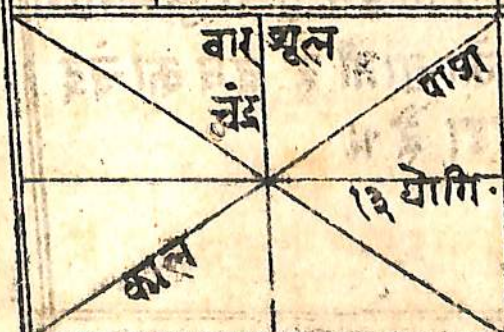 वार शूल
चंद्र
पाश
१३ योगि.
काल